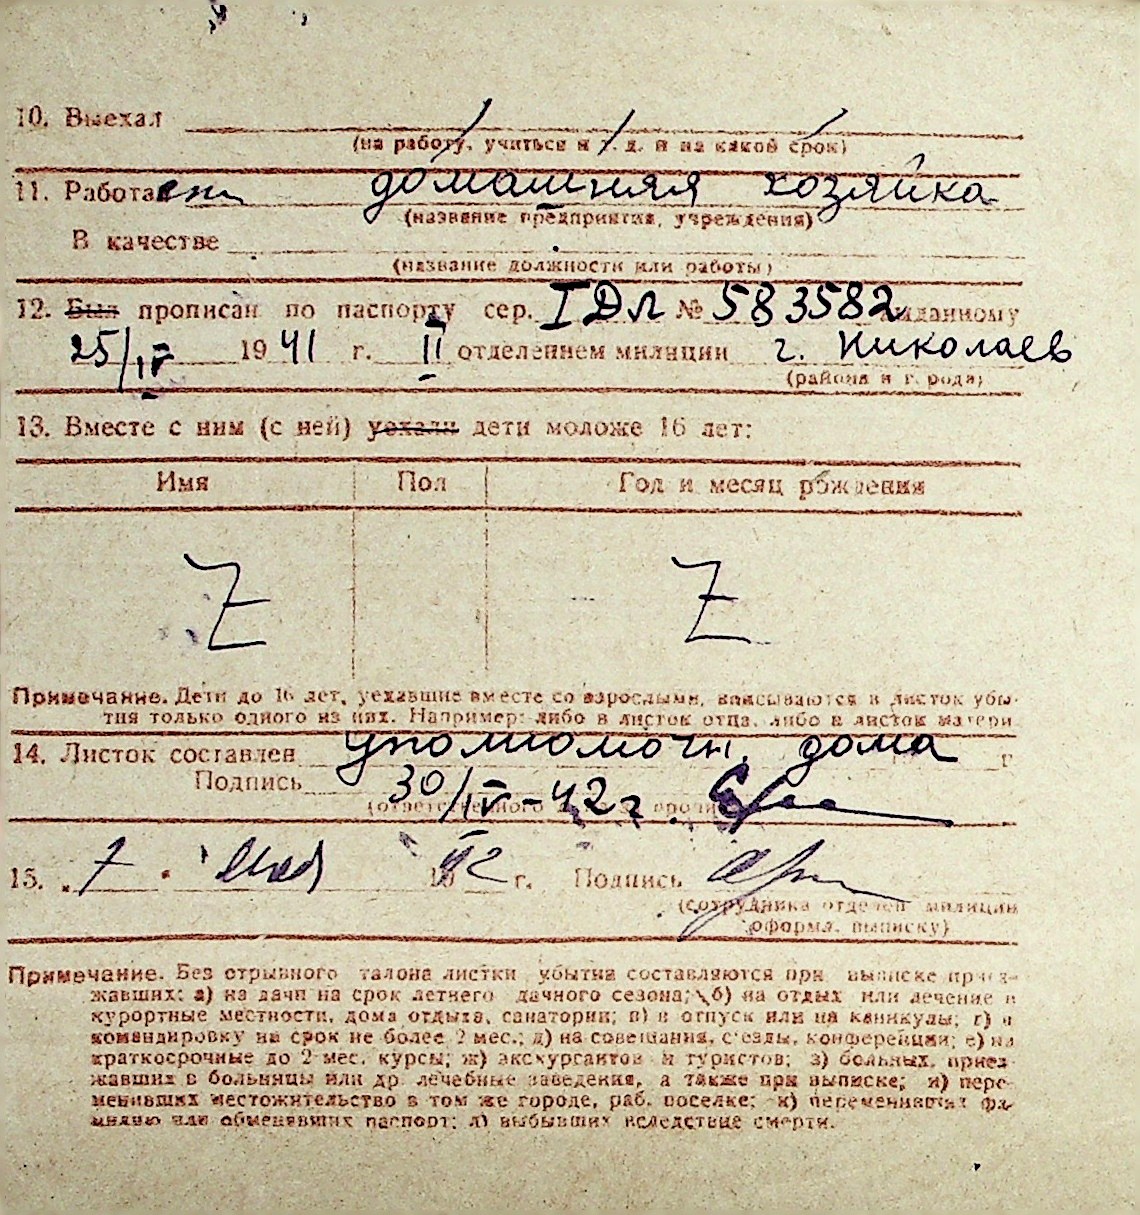 10. Выехал
(на работу, учиться и т. д. и на какой срок)
11. Работа домашняя хозяйка
(название предприятия, учреждения)
В качестве
(название должности или работы)
12. Был прописан по паспорту сер. I ДЛ № 583582 выданному
25/IV 1941 г. II отделением милиции г. Николаев
(района и города)
13. Вместе с ним (с ней) уехали дети моложе 16 лет:
Имя Пол Год и месяц рождения
Z Z
Примечание. Дети до 16 лет, уехавшие вместе со взрослыми, вписываются в листок убы-
тия только одного из них. Например: либо в листок отца, либо в листок матери.
14. Листок составлен уполномочн. дома г
Подпись 30/IV-42 г.
15. 7 мая 1942 г. Подпись
(сотрудника отделен милиции
оформл. выписку)
Примечание. Без отрывного талона листки убытия составляются при выписке приез-
жавших: а) на дачи на срок летнего дачного сезона; б) на отдых или лечение в
курортные местности, дома отдыха, санатории; в) в отпуск или на каникулы; г) в
командировку на срок не более 2 мес.; д) на совещания, съезды, конференции; е) на
краткосрочные до 2 мес. курсы; ж) экскурсантов и туристов; з) больных, приез-
жавших в больницы или др. лечебные заведения, а также при выписке; и) пере-
менивших местожительство в том же городе, раб. поселке; к) переменивших фа-
милию или обменявших паспорт; л) выбывших вследствие смерти.